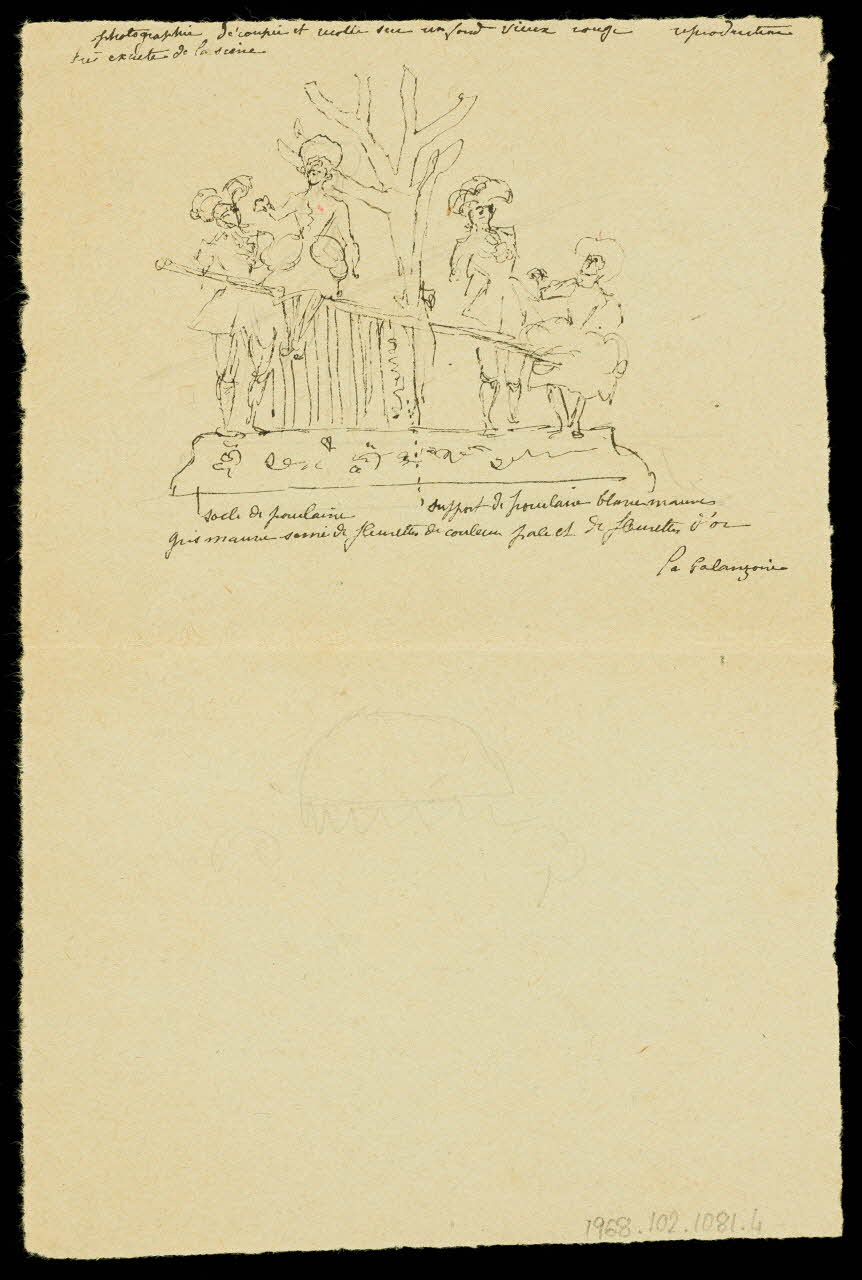 photographie découpée et collée sur un fond vieux rouge reproduction
très exacte de la scène
socle de porcelaine
support de porcelaine blanc mauve
gris mauve semé de fleurettes de couleur pale et de fleurettes d'or
la balançoire
1968.102.1081.4